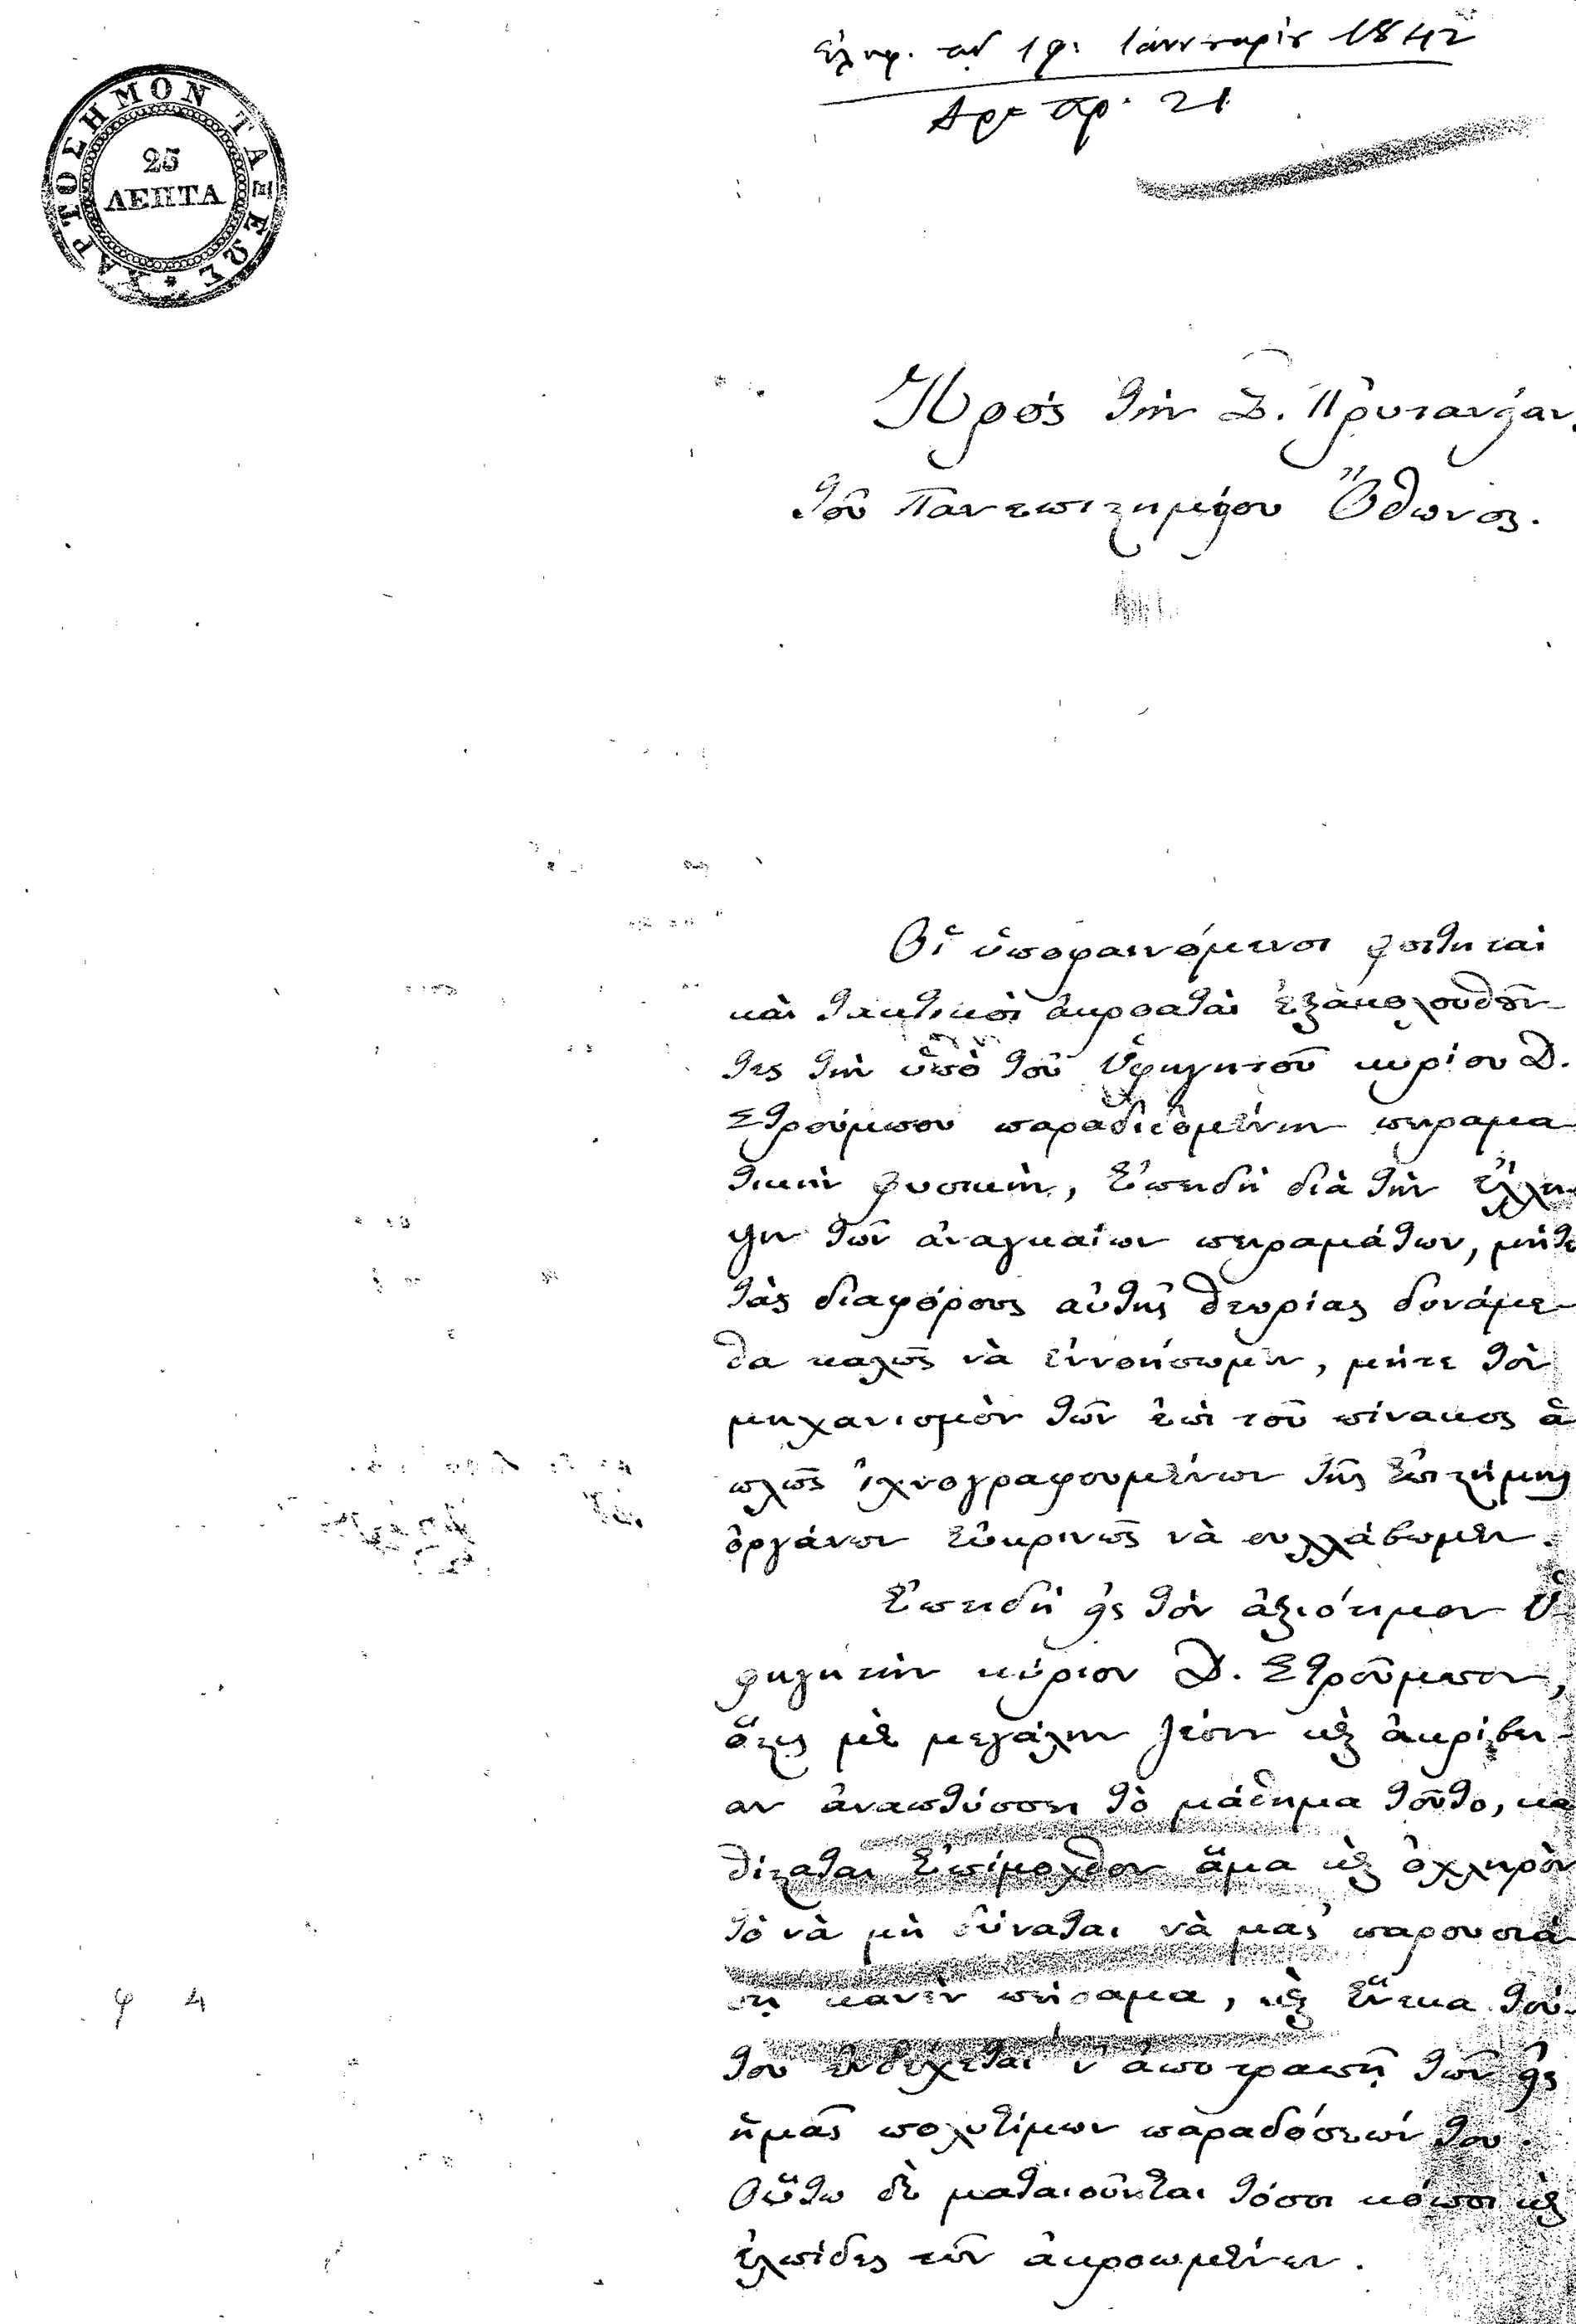 ΧΑΡΤΟΣΗΜΟΝ ΤΑΞΕΩΣ
25
ΛΕΠΤΑ
Ἐλήφ. τῇ 19 Ἰαννουαρίου 1842
Ἀρ. πρ. 21
Πρὸς τὴν Σ. Πρυτανείαν
τοῦ Πανεπιστημείου Ὄθωνος.
Οἱ ὑποφαινόμενοι φοιτηταὶ
καὶ τακτικοὶ ἀκροαταὶ ἐξακολουθοῦν-
τες τὴν ὑπὸ τοῦ Ὑφηγητοῦ κυρίου Δ.
Στρούμπου παραδιδομένην πειραμα
τικὴν φυσικὴν, ἐπειδὴ διὰ τὴν ἔλλει
ψιν τῶν ἀναγκαίων πειραμάτων, μήτε
τὰς διαφόρους αὐτῆς θεωρίας δυνάμε-
θα καλῶς νὰ ἐννοήσωμεν, μήτε τὸν
μηχανισμὸν τῶν ἐπὶ τοῦ πίνακος ἁ
πλῶς ἰχνογραφουμένων τῆς ἐπιστήμης
ὀργάνων εὐκρινῶς νὰ συλλάβωμεν.
Ἐπειδὴ εἰς τὸν ἀξιότιμον Ὑ-
φηγητὴν κύριον Δ. Στροῦμπον,
ὅστις μὲ μεγάλην ζέσιν καὶ ἀκρίβει-
αν ἀναπτύσσει τὸ μάθημα τοῦτο, κα
θίσταται ἐπίμοχθον ἅμα καὶ ὀχληρὸν
τὸ νὰ μὴ δύναται νὰ μᾶς παρουσιά
σῃ κανὲν πείραμα, καὶ ἕνεκα τού-
του ἐνδέχεται ν' ἀποτραπῇ τῶν εἰς
ἡμᾶς πολυτίμων παραδόσεών του.
Οὕτω δὲ ματαιοῦνται τόσοι κόποι καὶ
ἐλπίδες τῶν ἀκροωμένων.
φ 4